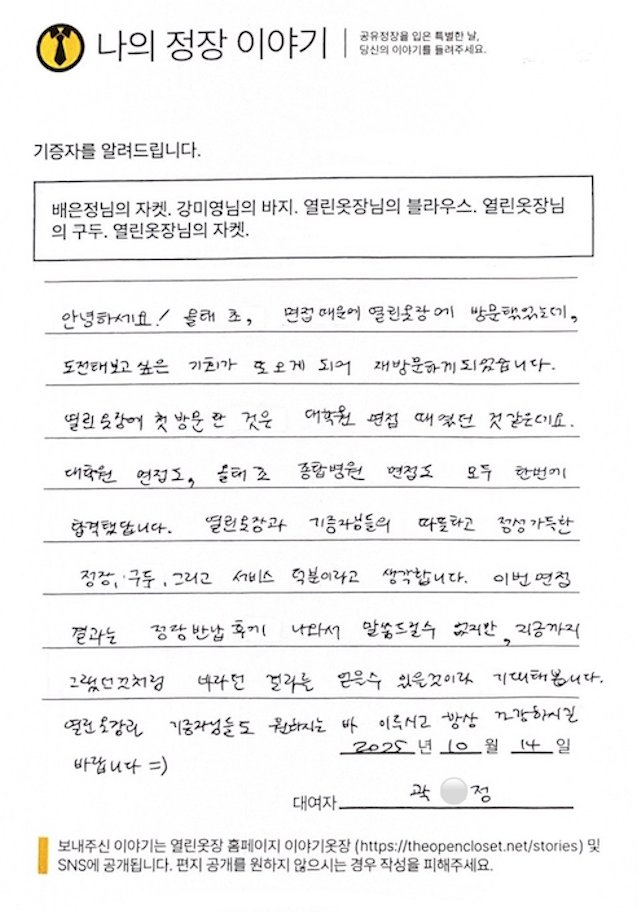 나의 정장 이야기
공유정장을 입은 특별한 날,
당신의 이야기를 들려주세요.
기증자를 알려드립니다.
배은정님의 자켓. 강미영님의 바지. 열린옷장님의 블라우스. 열린옷장님
의 구두. 열린옷장님의 자켓.
안녕하세요! 올해 초, 면접 때문에 열린옷장에 방문했었는데,
도전해보고 싶은 기회가 또 오게 되어 재방문하게 되었습니다.
열린옷장에 첫 방문한 것은 대학원 면접 때였던 것 같은데요.
대학원 면접도, 올해 초 종합병원 면접도 모두 한번에
합격했답니다. 열린옷장과 기증자님들의 따뜻하고 정성가득한
정장, 구두, 그리고 서비스 덕분이라고 생각합니다. 이번 면접
결과는 정장 반납 후에 나와서 말씀드릴수 없지만, 지금까지
그랬던것처럼 바라던 결과를 얻을수 있을것이라 기대해봅니다.
열린옷장과 기증자님들도 원하시는 바 이루시고 항상 건강하시길
바랍니다 =)
2025 년 10 월 14 일
대여자 곽 정
보내주신 이야기는 열린옷장 홈페이지 이야기옷장 (https://theopencloset.net/stories) 및
SNS에 공개됩니다. 편지 공개를 원하지 않으시는 경우 작성을 피해주세요.